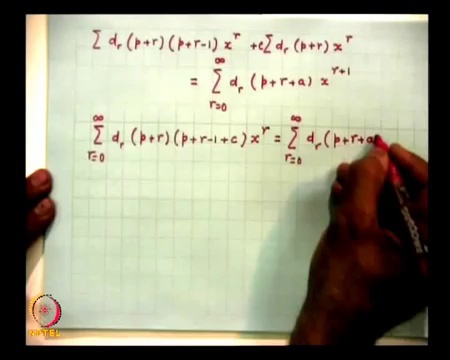 Σ d_r (p+r) (p+r-1) x^r + c Σ d_r (p+r) x^r
= Σ_{r=0}^{∞} d_r (p+r+a) x^{r+1}
Σ_{r=0}^{∞} d_r (p+r) (p+r-1+c) x^r = Σ_{r=0}^{∞} d_r (p+r+a
NPTEL